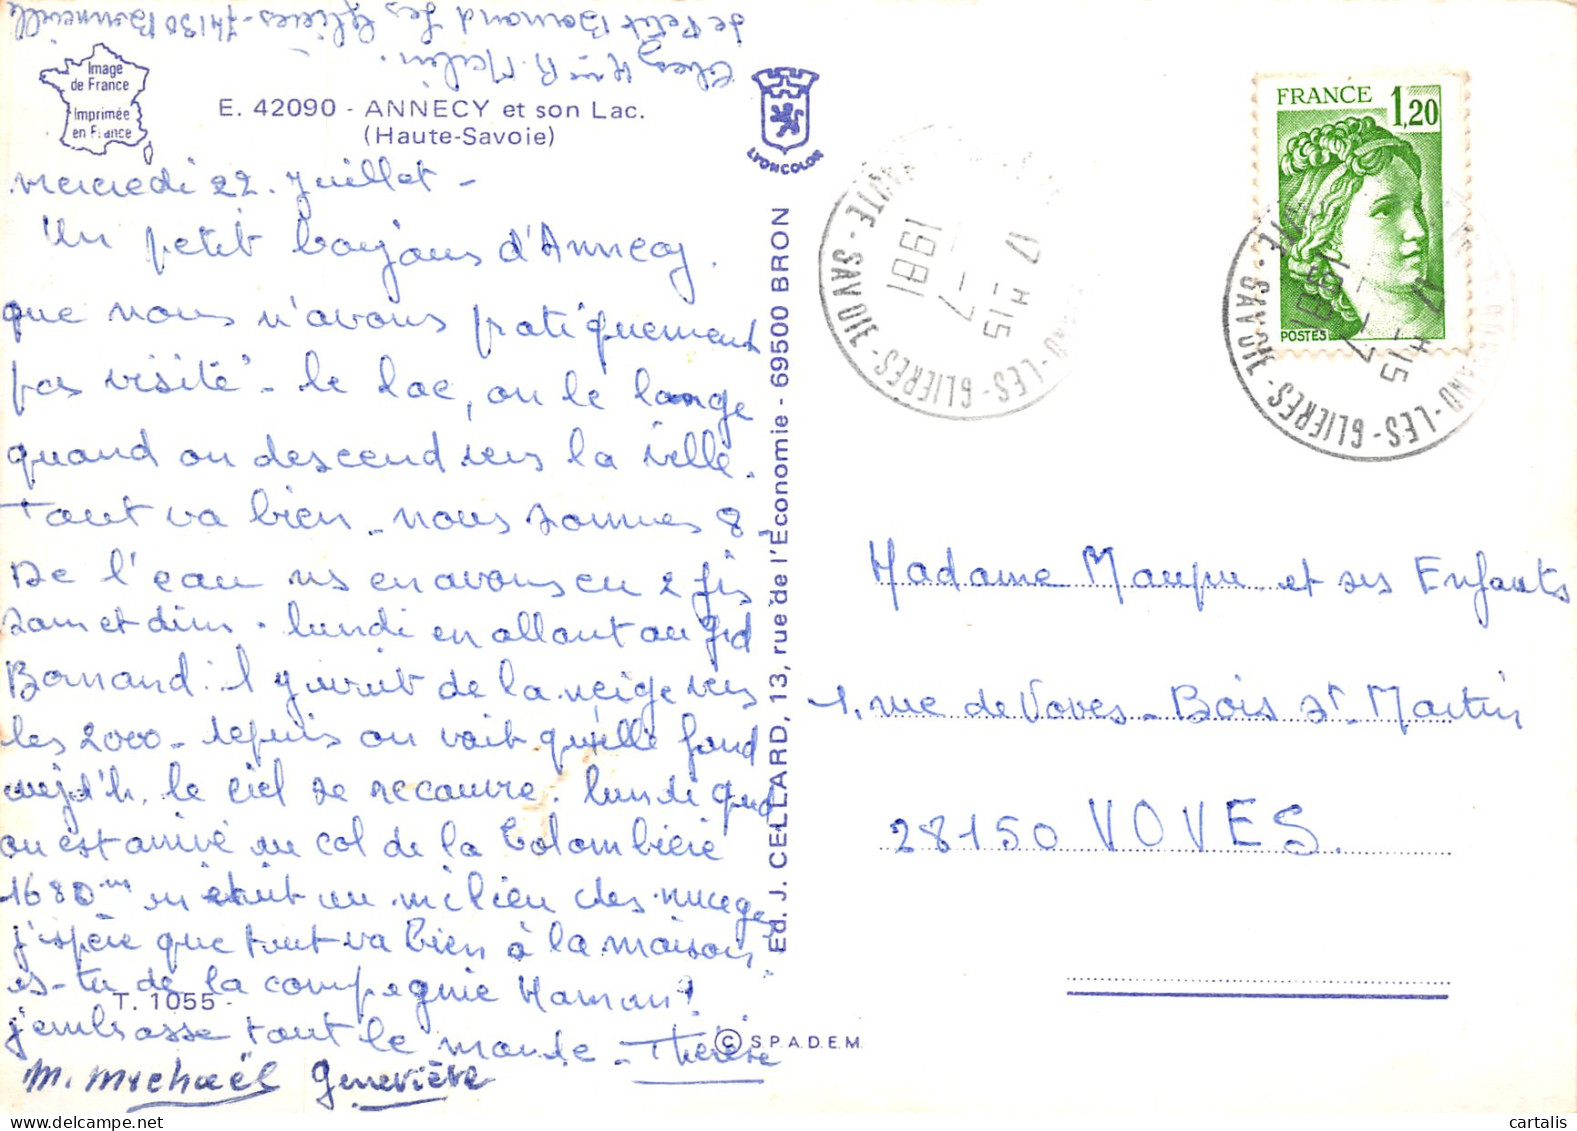 Chez Mme R. Merlin.
de Petit Bornand Les Glières - 74130 Bonneville
Image
de France
Imprimée
en France
E. 42090 - ANNECY et son Lac.
(Haute-Savoie)
LYONCOLOR
mercredi 22. Juillet -
Un petit bonjour d'Annecy.
que nous n'avons pratiquement
pas visité - le lac, on le longe
quand on descend vers la ville.
Tout va bien - nous sommes 8
De l'eau ns en avons eu 2 fs
sam et dim. lundi en allant au Gd
Bornand: il y avait de la neige vers
les 2000 - depuis on voit qu'elle fond
aujd'h. le ciel se recouvre. lundi qud
on est arrivé au col de la Colombière
1680m on était au milieu des nuages
j'espère que tout va bien à la maison
es-tu de la compagnie Maman!
T. 1055 -
j'embrasse tout le monde - Thérèse
M. Michaël Geneviève
Ed. J. CELLARD, 13, rue de l'Économie - 69500 BRON
© S.P.A.D.E.M.
17 H 15
- 7
1981
LES-GLIERES - HAUTE-SAVOIE
FRANCE 1,20
POSTES
17 H 15
- 7
1981
BORNAND-LES-GLIERES - HTE-SAVOIE
Madame Maupu et ses Enfants
1, rue de Voves - Bois St Martin
28150 VOVES.
cartalis